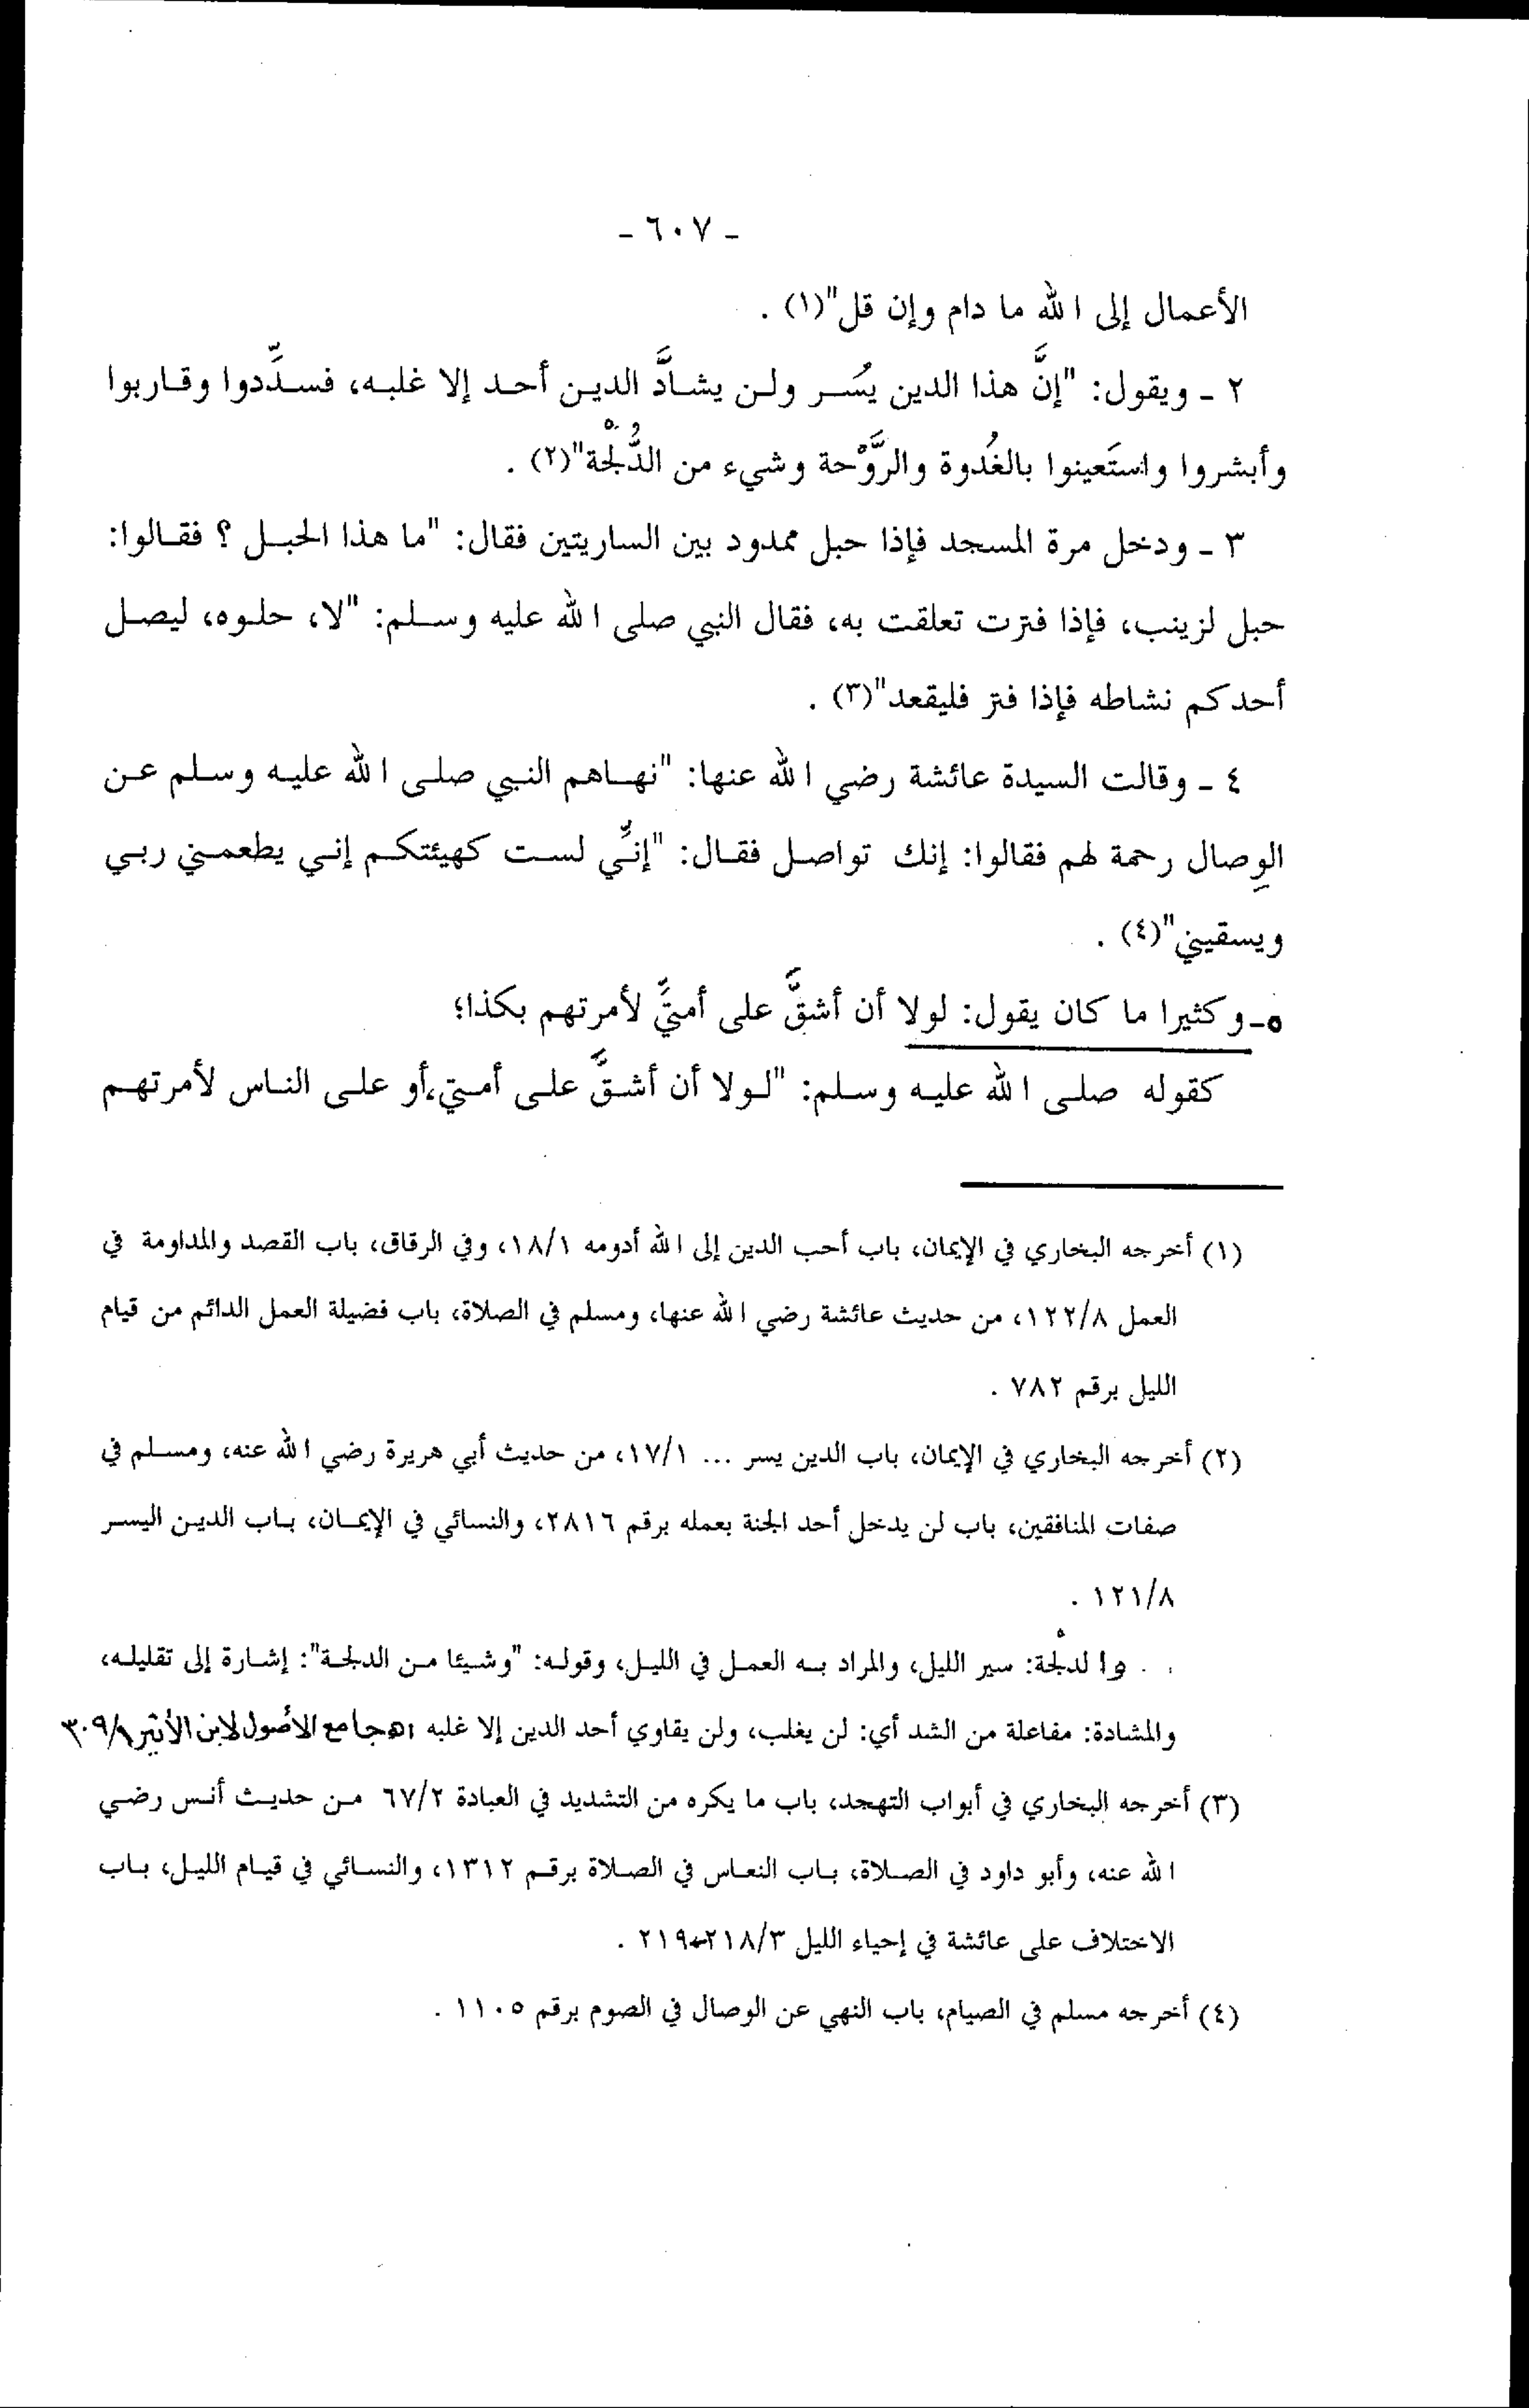 - ٦٠٧ -
الأعمال إلى الله ما دام وإن قل"(١) .
٢ - ويقول: "إنَّ هذا الدين يُسَر ولن يشادَّ الدين أحد إلا غلبه، فسدِّدوا وقاربوا
وأبشروا واستَعينوا بالغُدوة والرَّوْحة وشيء من الدُّلْجُة"(٢) .
٣ - ودخل مرة المسجد فإذا حبل ممدود بين الساريتين فقال: "ما هذا الحبل ؟ فقالوا:
حبل لزينب، فإذا فترت تعلقت به، فقال النبي صلى الله عليه وسلم: "لا، حلوه، ليصل
أحدكم نشاطه فإذا فتر فليقعد"(٣) .
٤ - وقالت السيدة عائشة رضي الله عنها: "نهاهم النبي صلى الله عليه وسلم عن
الوِصال رحمة لهم فقالوا: إنك تواصل فقال: "إنِّي لست كهيئتكم إني يطعمني ربي
ويسقيني"(٤) .
٥- وكثيرا ما كان يقول: لولا أن أشقَّ على أمتيِّ لأمرتهم بكذا؛
كقوله صلى الله عليه وسلم: "لولا أن أشقَّ على أمتي،أو على الناس لأمرتهم
(١) أخرجه البخاري في الإيمان، باب أحب الدين إلى الله أدومه ١٨/١، وفي الرقاق، باب القصد والمداومة في
العمل ١٢٢/٨، من حديث عائشة رضي الله عنها، ومسلم في الصلاة، باب فضيلة العمل الدائم من قيام
الليل برقم ٧٨٢ .
(٢) أخرجه البخاري في الإيمان، باب الدين يسر ... ١٧/١، من حديث أبي هريرة رضي الله عنه، ومسلم في
صفات المنافقين، باب لن يدخل أحد الجنة بعمله برقم ٢٨١٦، والنسائي في الإيمان، باب الدين اليسر
١٢١/٨ .
والدلْجة: سير الليل، والمراد به العمل في الليل، وقوله: "وشيئا من الدلجة": إشارة إلى تقليله،
والمشادة: مفاعلة من الشد أي: لن يغلب، ولن يقاوي أحد الدين إلا غلبه اهـ جامع الأصول لابن الأثير ٣٠٩/١
(٣) أخرجه البخاري في أبواب التهجد، باب ما يكره من التشديد في العبادة ٦٧/٢ من حديث أنس رضي
الله عنه، وأبو داود في الصلاة، باب النعاس في الصلاة برقم ١٣١٢، والنسائي في قيام الليل، باب
الاختلاف على عائشة في إحياء الليل ٢١٨/٣-٢١٩ .
(٤) أخرجه مسلم في الصيام، باب النهي عن الوصال في الصوم برقم ١١٠٥ .